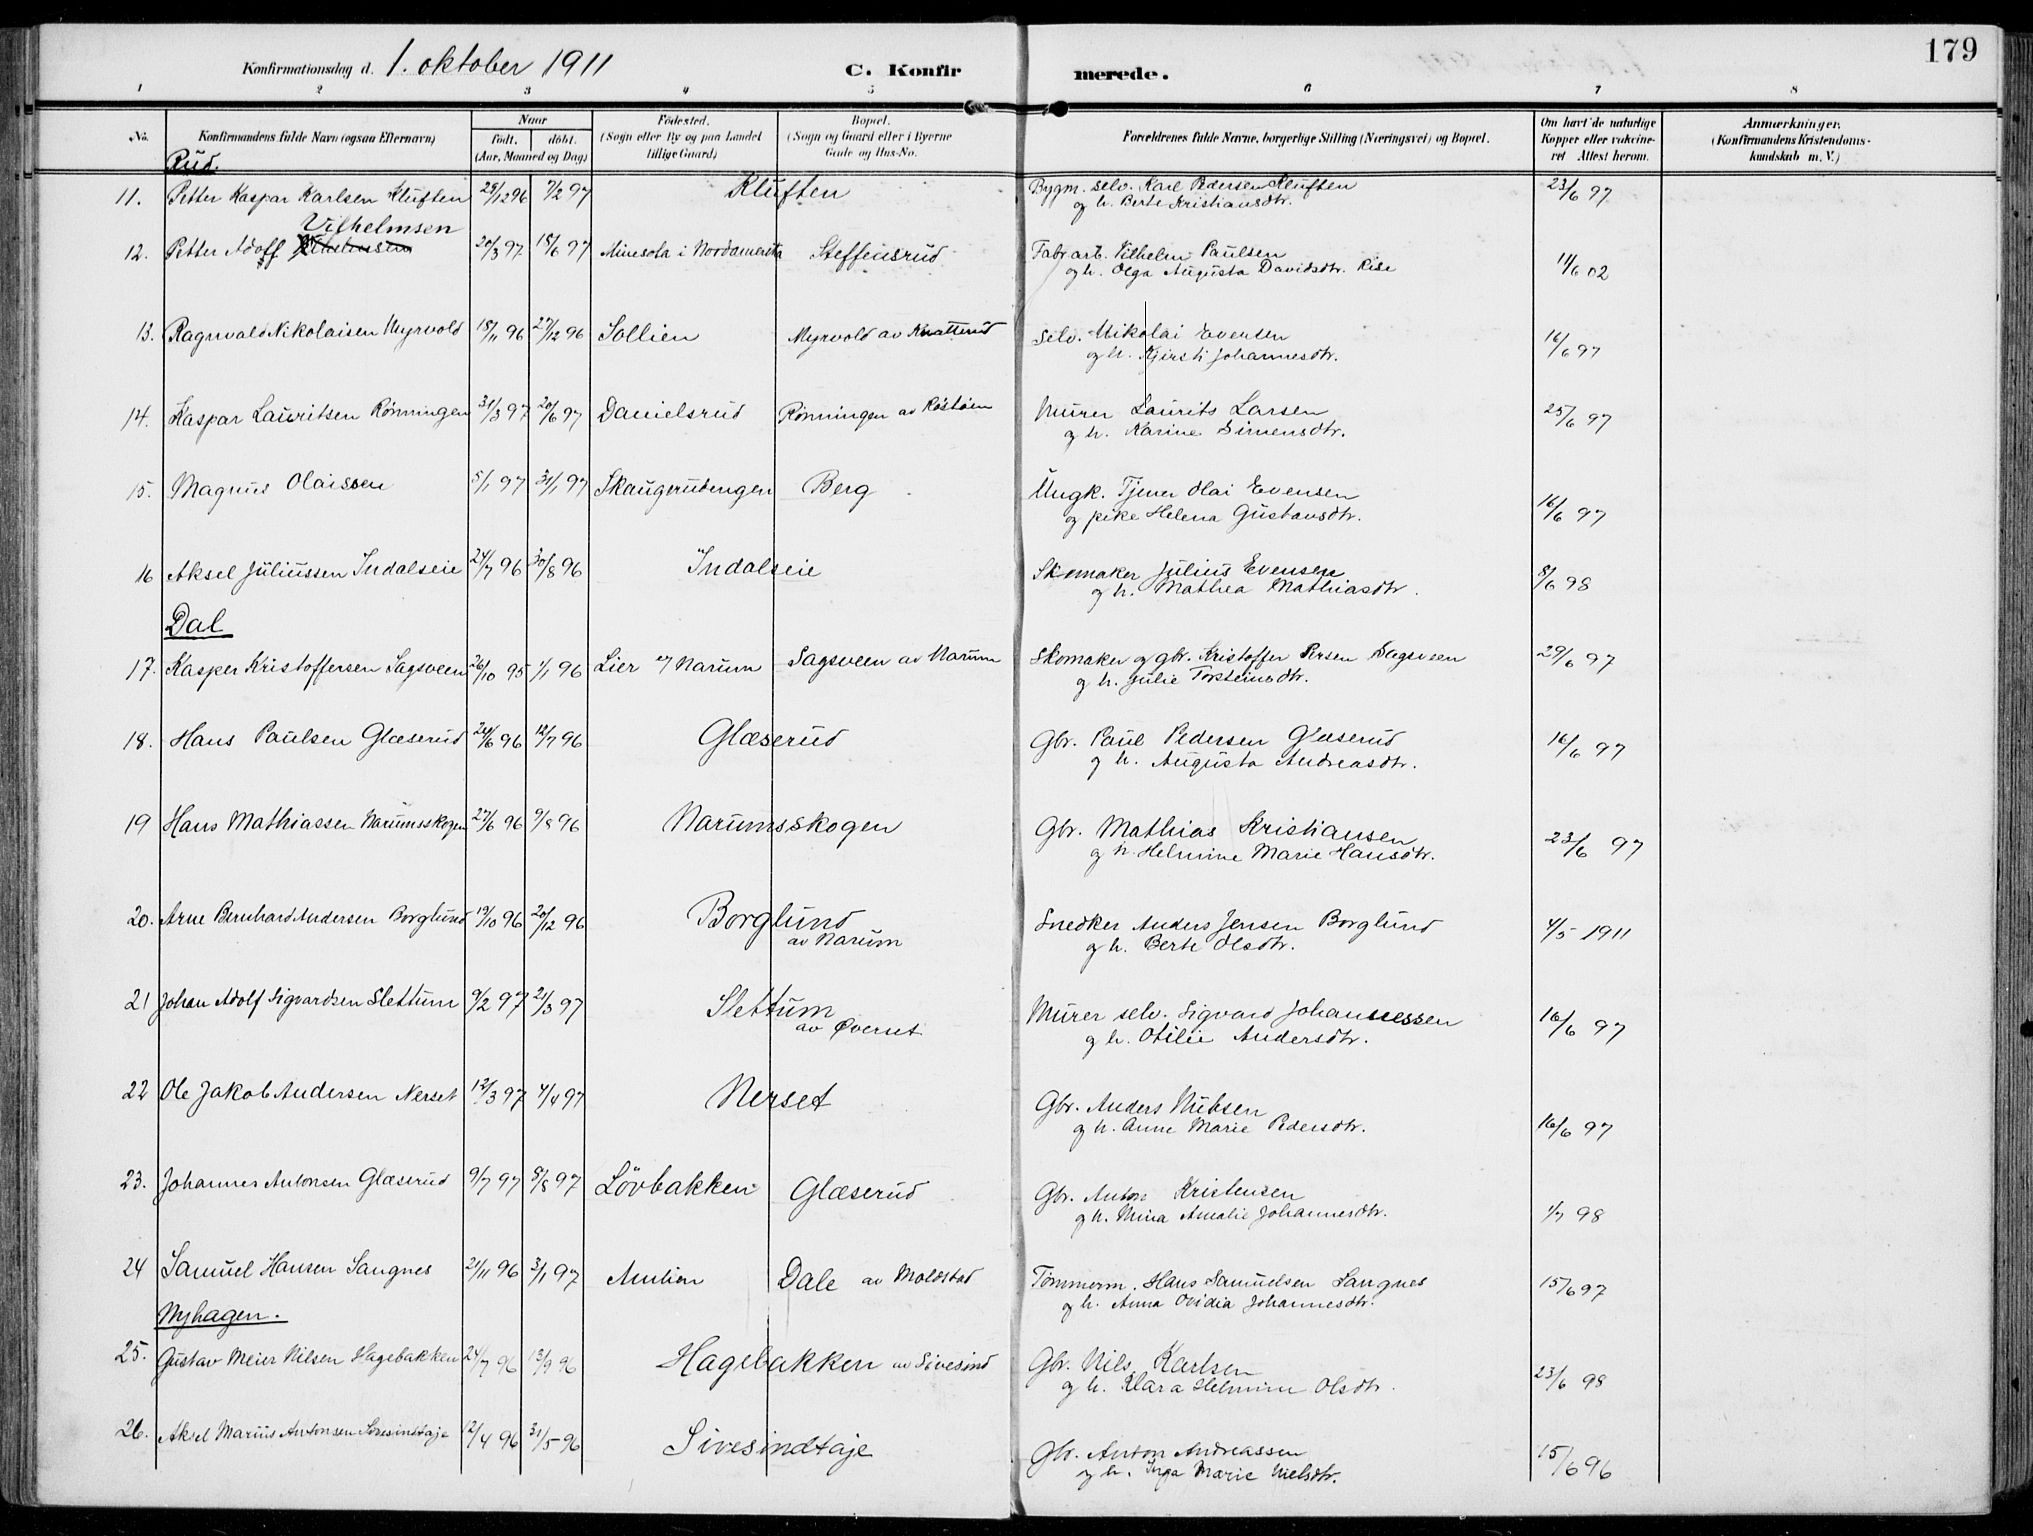 179
Konfirmationsdag d. 1. oktober 1911 C. Konfirmerede.
1 2 3 4 5 6 7 8
No. Konfirmandens fulde Navn (ogsaa Efternavn) Naar født. døbt. (Aar, Maaned og Dag) Fødested. (Sogn eller By og paa Landet tillige Gaard) Bopæl. (Sogn og Gaard eller i Byerne Gade og Hus-No. Forældrenes fulde Navne, borgerlige Stilling (Næringsvei) og Bopæl. Om havt de naturlige Kopper eller vakcineret Attest herom. Anmærkninger. (Konfirmandens Kristendomskundskab m. V.)
Rud
11. Petter Kaspar Karlsen Kluften 29/12 96 7/2 97 Kluften Bygm. selv. Karl Pedersen Kluften 23/6 97
og h. Berte Kristiansdtr.
Vilhelmsen
12. Petter Adolf 20/3 97 18/6 97 Minesota i Nordamerika Steffensrud Fabr arb. Vilhelm Paulsen 11/6 02
og h. Olga Augusta Davidsdtr. Rise
13. Ragnvald Nikolaisen Myrvold 18/11 96 27/12 96 Sollien Myrvold av Knatterud Selv. Nikolai Evensen 16/6 97
og h. Kjersti Johannesdtr.
14. Kaspar Lauritsen Rönningen 31/3 97 20/6 97 Danielsrud Rönningen av Röstöen Murer Laurits Larsen 25/6 97
og h. Karine Simensdtr.
15. Magnus Olaissen 5/1 97 31/1 97 Skaugerudengen Berg Ungk. Tjener Olai Evensen 16/6 97
og pike Helena Gustavsdtr.
16 Aksel Juliussen Indalseie 24/7 96 30/8 96 Indalseie Skomaker Julius Evensen 8/6 98
og h. Mathea Mathiasdtr.
Dal
17. Kasper Kristoffersen Sagsveen 26/10 95 1/1 96 Lier av Narum Sagsveen av Narum Skomaker og gbr. Kristoffer Persen Sagsveen 29/6 97
og h. Julie Torsteinsdtr.
18. Hans Paulsen Glæserud 24/6 96 12/7 96 Glæserud Gbr. Paul Pedersen Glæserud 16/6 97
og h. Augusta Andreasdtr.
19 Hans Mathiassen Narumsskogen 27/6 96 9/8 96 Narumsskogen Gbr. Mathias Kristiansen 23/6 97
og h. Helmine Marie Hansdtr.
20. Arne Bernhard Andersen Borglund 19/10 96 20/12 96 Borglund Snedker Anders Jensen Borglund 4/5 1911
av Narum og h. Berte Olsdtr.
21 Johan Adolf Sigvardsen Slettum 9/2 97 21/3 97 Slettum Murer selv. Sigvard Johannessen 16/6 97
av Øvernet og h. Otilie Andersdtr.
22 Ole Jakob Andersen Nerset 12/3 97 4/4 97 Nerset Gbr. Anders Nilsen 16/6 97
og h. Anne Marie Pedersdtr.
23. Johannes Antonsen Glæserud 9/7 97 8/8 97 Lövbakken Glæserud Gbr. Anton Kristensen 1/7 98
og h. Mina Amalie Johannesdtr.
24 Samuel Hansen Sangnes 21/11 96 3/1 97 Amlien Dale av Moldstad Tömmerm. Hans Samuelsen Sangnes 15/6 97
og h. Anna Ovidia Johannesdtr.
Nyhagen.
25. Gustav Meier Nilsen Hagebakken 24/7 96 13/9 96 Hagebakken av Sivesind Gbr. Nils Karlsen 23/6 98
og h. Klara Helmine Olsdtr.
26. Aksel Marius Antonsen Sivesindtaje 12/4 96 31/5 96 Sivesindtaje Gbr. Anton Andreassen 15/6 96
og h. Inga Marie Nielsdtr.